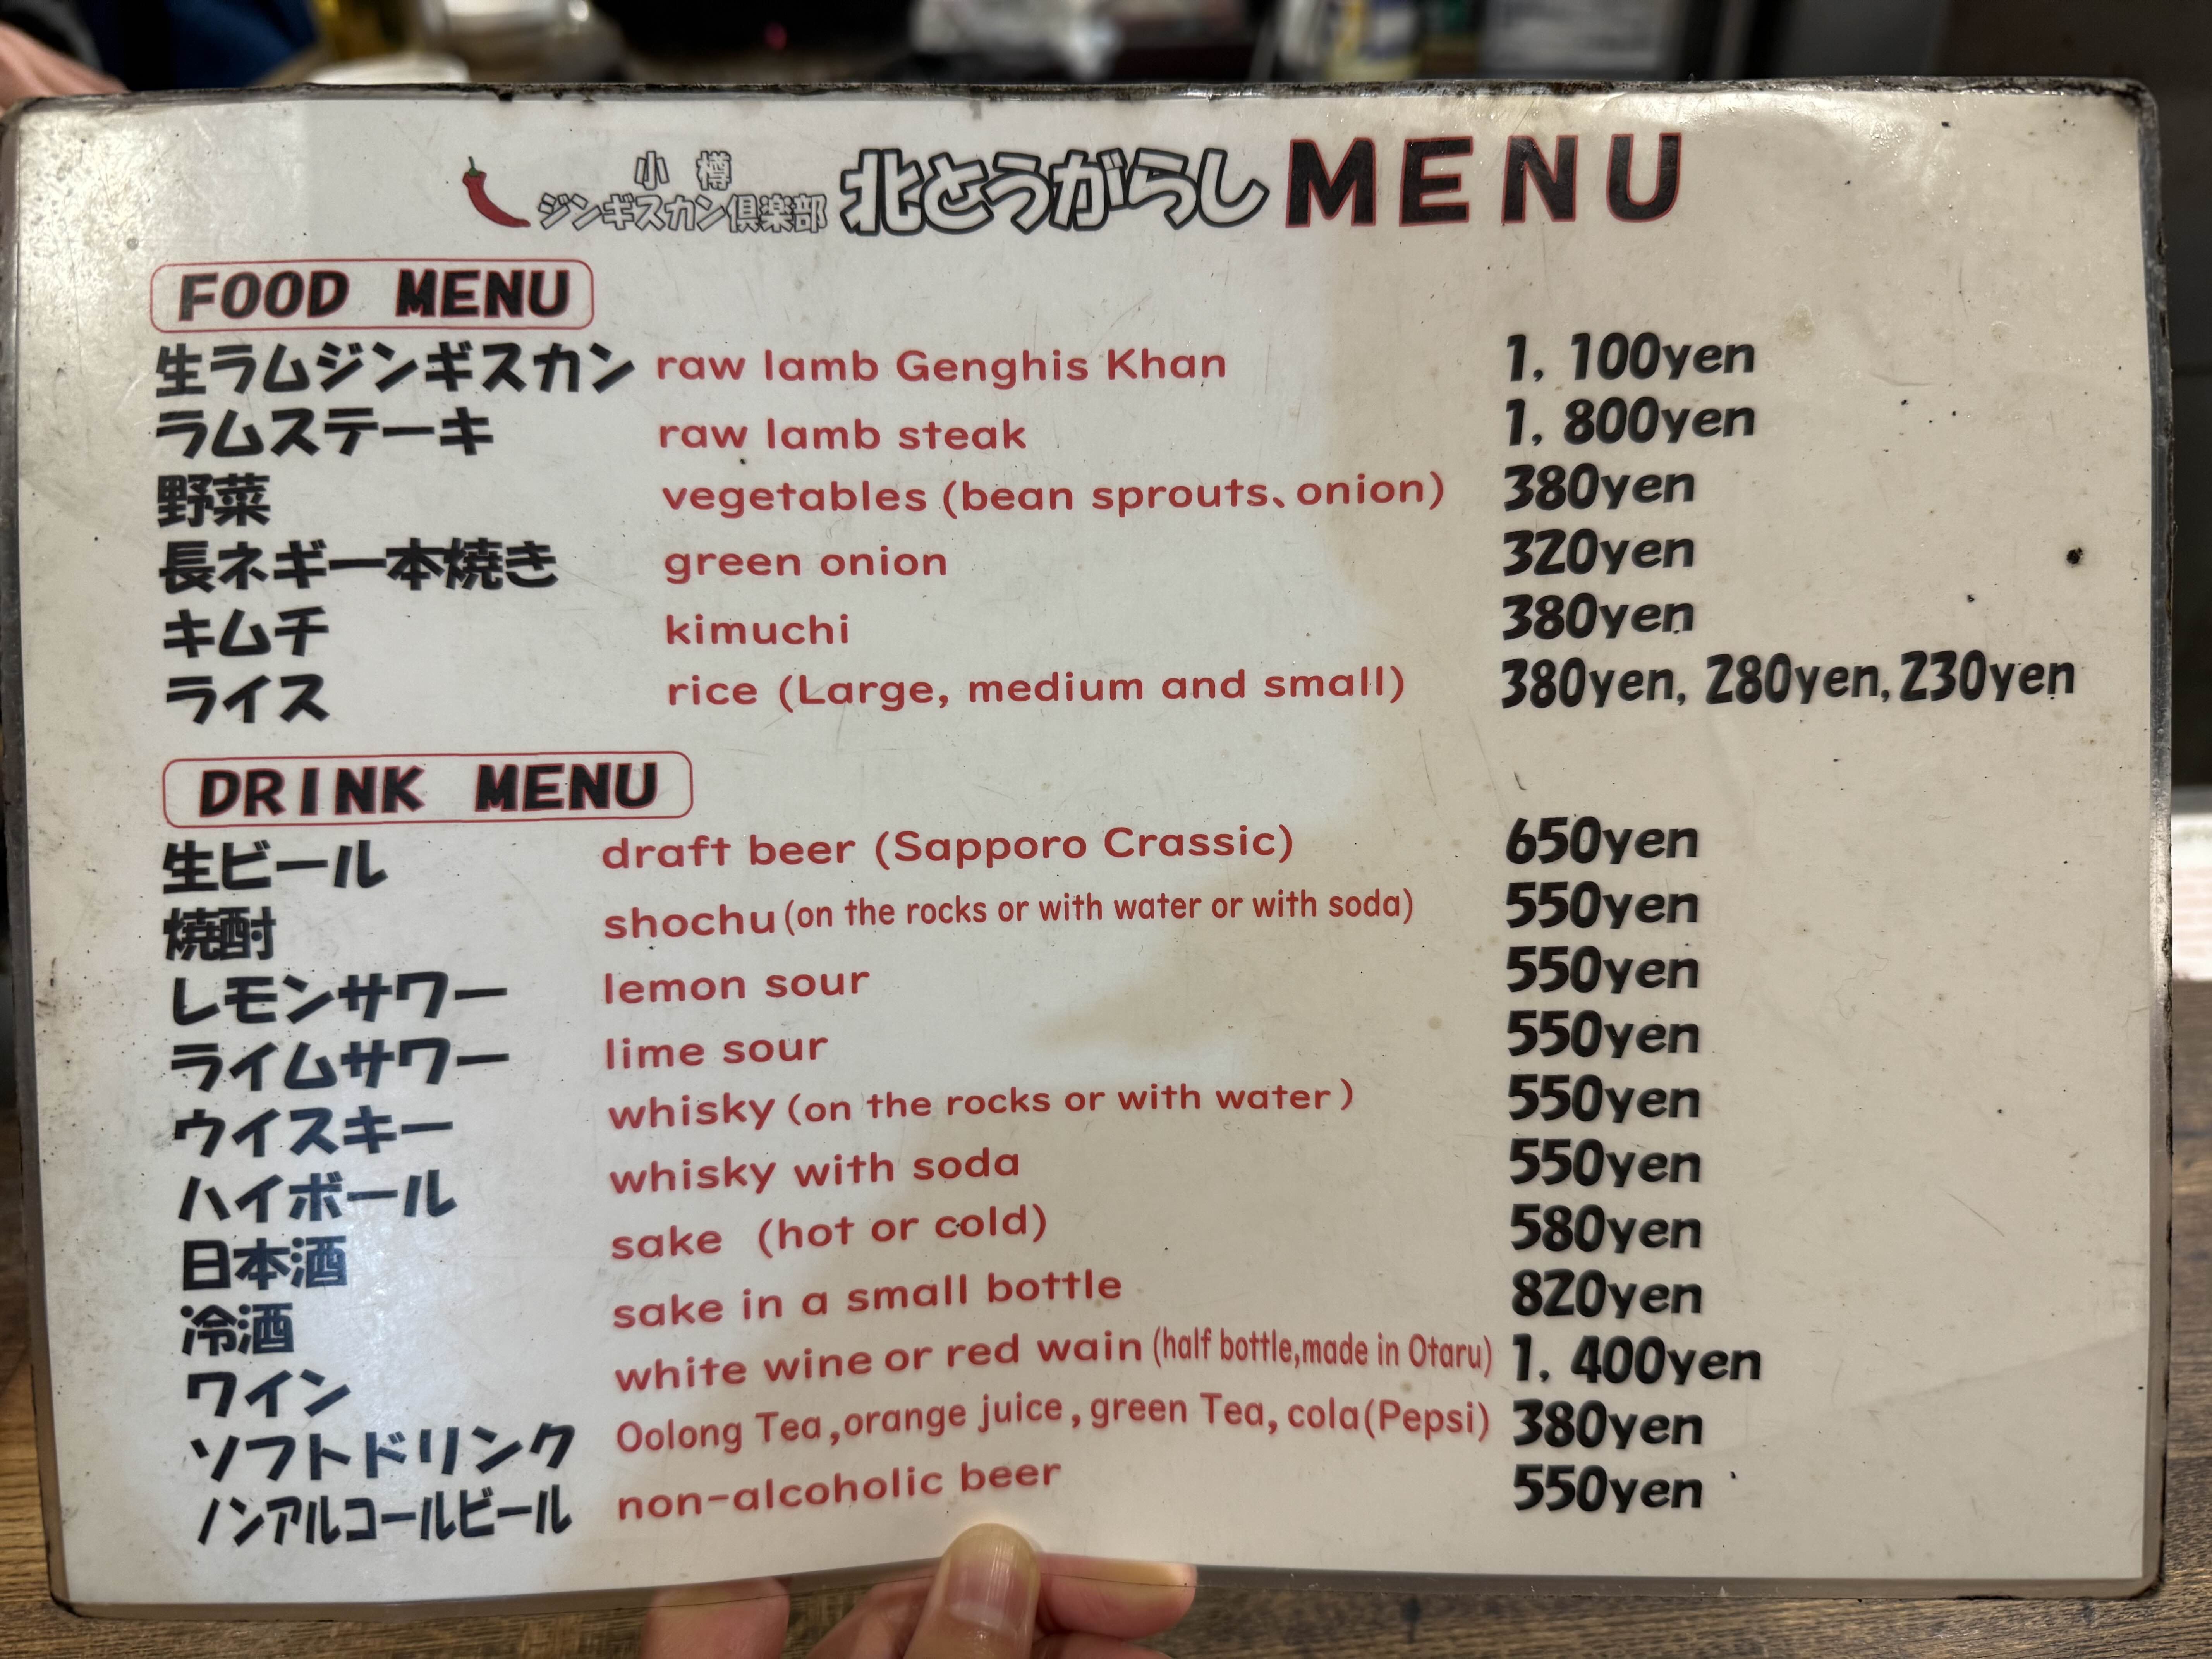 小樽
ジンギスカン倶楽部 北とうがらし MENU
FOOD MENU
生ラムジンギスカン raw lamb Genghis Khan 1, 100yen
ラムステーキ raw lamb steak 1, 800yen
野菜 vegetables (bean sprouts、onion) 380yen
長ネギ一本焼き green onion 320yen
キムチ kimuchi 380yen
ライス rice (Large, medium and small) 380yen, 280yen, 230yen
DRINK MENU
生ビール draft beer (Sapporo Crassic) 650yen
焼酎 shochu (on the rocks or with water or with soda) 550yen
レモンサワー lemon sour 550yen
ライムサワー lime sour 550yen
ウイスキー whisky (on the rocks or with water) 550yen
ハイボール whisky with soda 550yen
日本酒 sake (hot or cold) 580yen
冷酒 sake in a small bottle 820yen
ワイン white wine or red wain (half bottle,made in Otaru) 1, 400yen
ソフトドリンク Oolong Tea ,orange juice , green Tea, cola(Pepsi) 380yen
ノンアルコールビール non-alcoholic beer 550yen